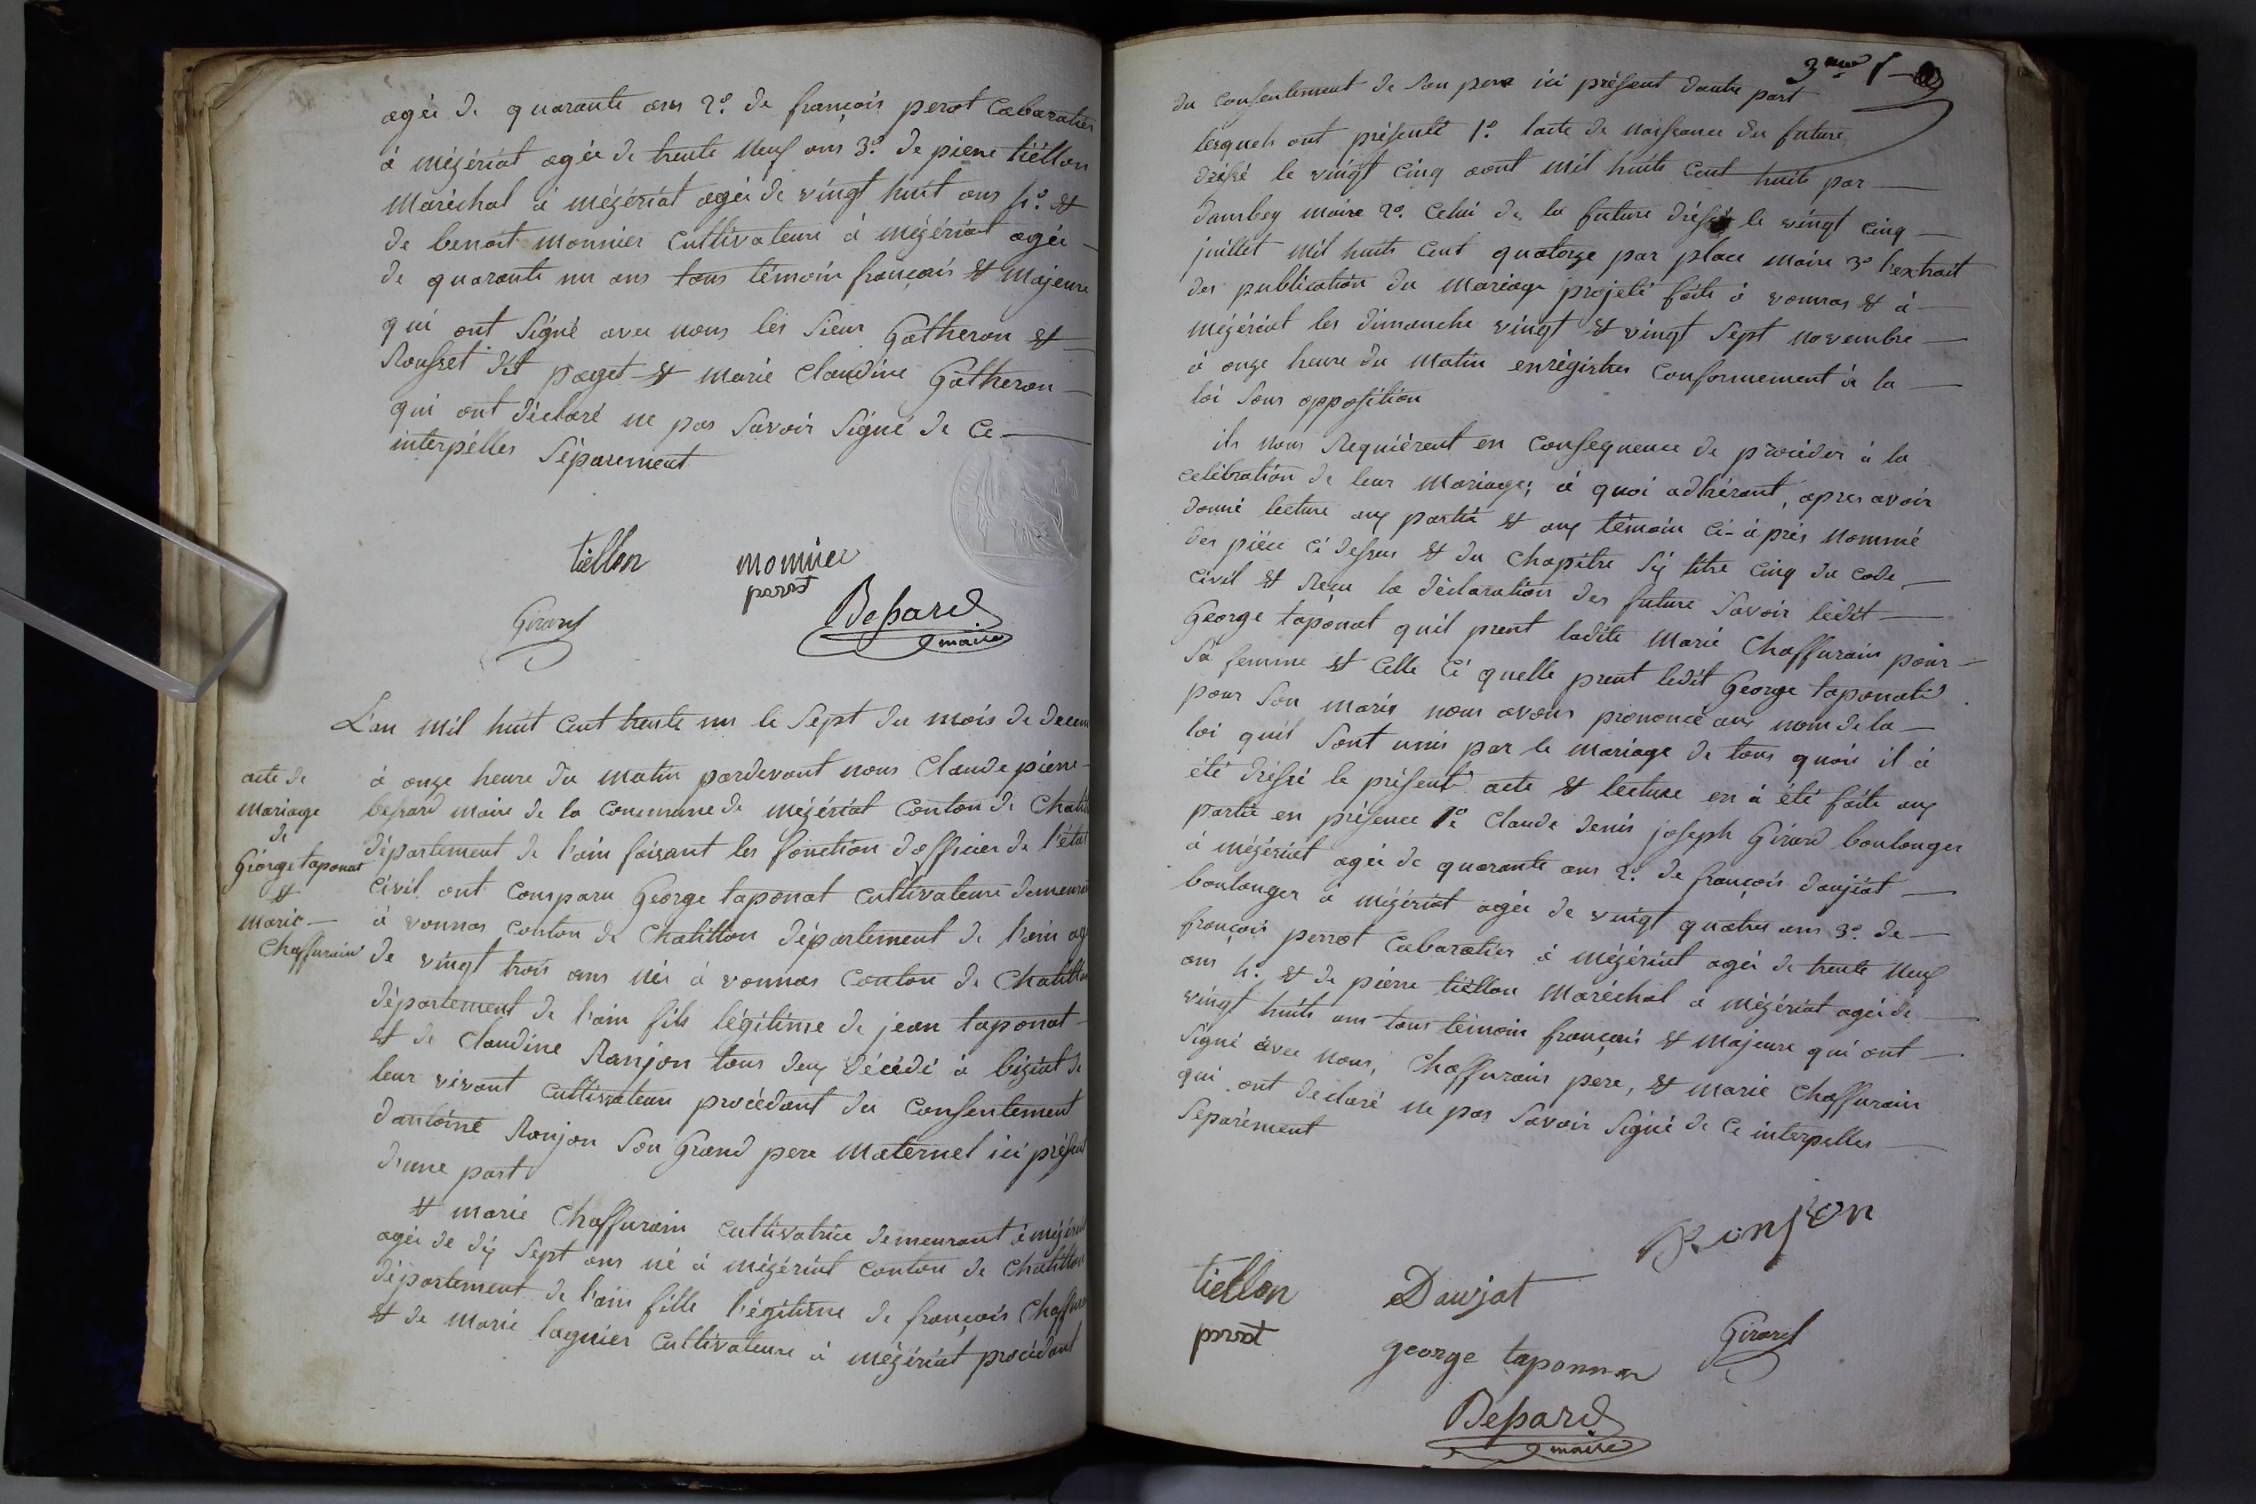 agée de quarante ans 2.° de françois perot Cabaratier
à mézériat agée de trente neuf ans 3.° de pierre tiéllon
maréchal à mézériat agée de vingt huit ans 4.° &
de benoit monnier Cultivateure à mézériat agée
de quarante un ans tous témoin français & majeure
qui ont signé avec nous les sieur Gatheron &
Rousset dit paget & marie claudine Gatheron
qui ont déclaré ne pas savoir signé de ce
interpélles séparement
tiellon monnier
perrot
Girard Besard
maire
L'an mil huit cent trente un le sept du mois de decem
acte de
mariage
de
Géorge taponat
&
marie
Chaffurain
à onze heure du matin pardevant nous Claude pierre
besard maire de la commune de mézériat Conton de Chatil
département de l'ain faisant les fonction d'officier de l'état
civil ont comparu George taponat cultivateure demeura
à vonnas conton de Chatillon département de l'ain ag
de vingt trois ans née à vonnas conton de Chatillon
département de l'ain fils légitime de jean taponat
& de Claudine Ronjon tous deux décédé à biziat de
leur vivant cultivateure procédant du consentement
d'antoine Ronjon son Grand pere maternel ici présent
d'une part
& marie Chaffurain cultivatrice demeurant à mézériat
agée de dix sept ans né à mézériat conton de Chatillon
département de l'ain fille l'égitime de françois Chaffura
& de marie laguier cultivateure à mézériat procédant
3me f
du consentement de son pere ici présent dautre part
lesquels ont présenté 1.° l'acte de naissance du future
dréssé le vingt cinq aout mil huits cent huits par
dambey maire 2.° celui de la future dréssé le vingt cinq
juillet mil huits cent quatorze par place maire 3.° l'extrait
des publication du mariage projeté faits à vonnas & à
mézériat les dimanche vingt & vingt sept novembre
à onze heure du matin enrégistres conformement à la
loi sans opposition
ils nous Requièrent en consequence de procéder à la
celébration de leur mariage; à quoi adhérant, apres avoir
donné lecture aux partie & aux témoin ci-après nommé
des pièce ci dessus & du chapitre six titre cinq du code
civil & Reçu la déclaration des future savoir ledit
George taponat quil prent ladite marie Chaffurain pour
sa femme & celle ci quelle prent ledit George taponat
pour son maris nous avons prononcé aux nom de la
loi quil sont unis par le mariage de tous quoi il à
été dréssé le présent acte & lecture en à été faite aux
partie en présence 1.° Claude denis joseph Girard boulonger
à mézériat agée de quarante ans 2.° de françois daujat
boulanger à mézériat agée de vingt quatres ans 3.° de
françois perrot Cabaratier à mézériat agée de trente neuf
ans 4.° & de pierre tiéllon maréchal à mézériat agée de
vingt huits ans tous témoin français & majeure qui ont
signé avec nous, Chaffurain pere, & marie Chaffurain
qui ont déclaré ne pas savoir signé de ce interpelles
séparément
Ronjon
tiellon Daujat
perrot Girard
george taponna
Besard
maire